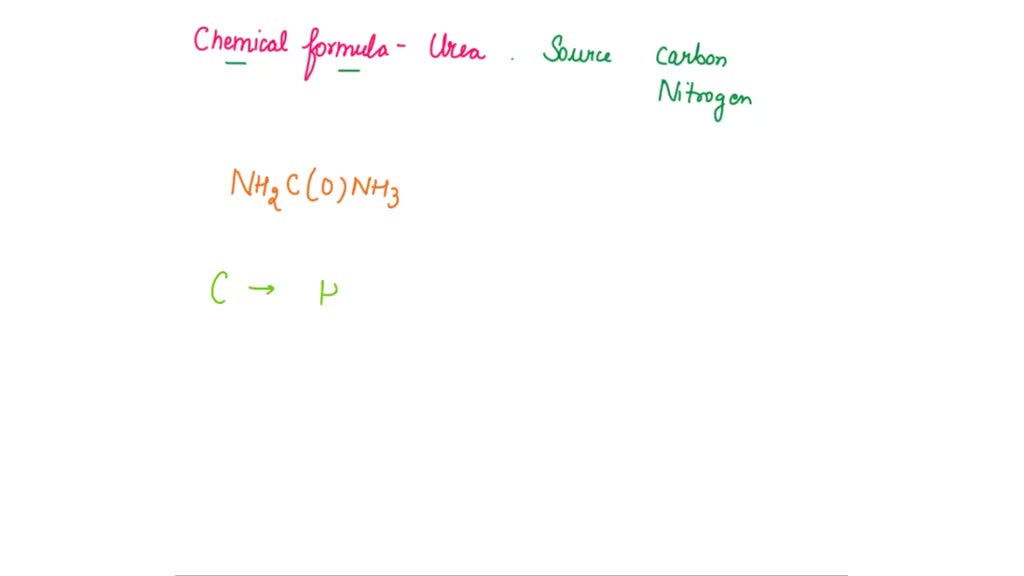 Chemical formula - Urea . Source Carbon
Nitrogen
NH₂C(O)NH₃
C →